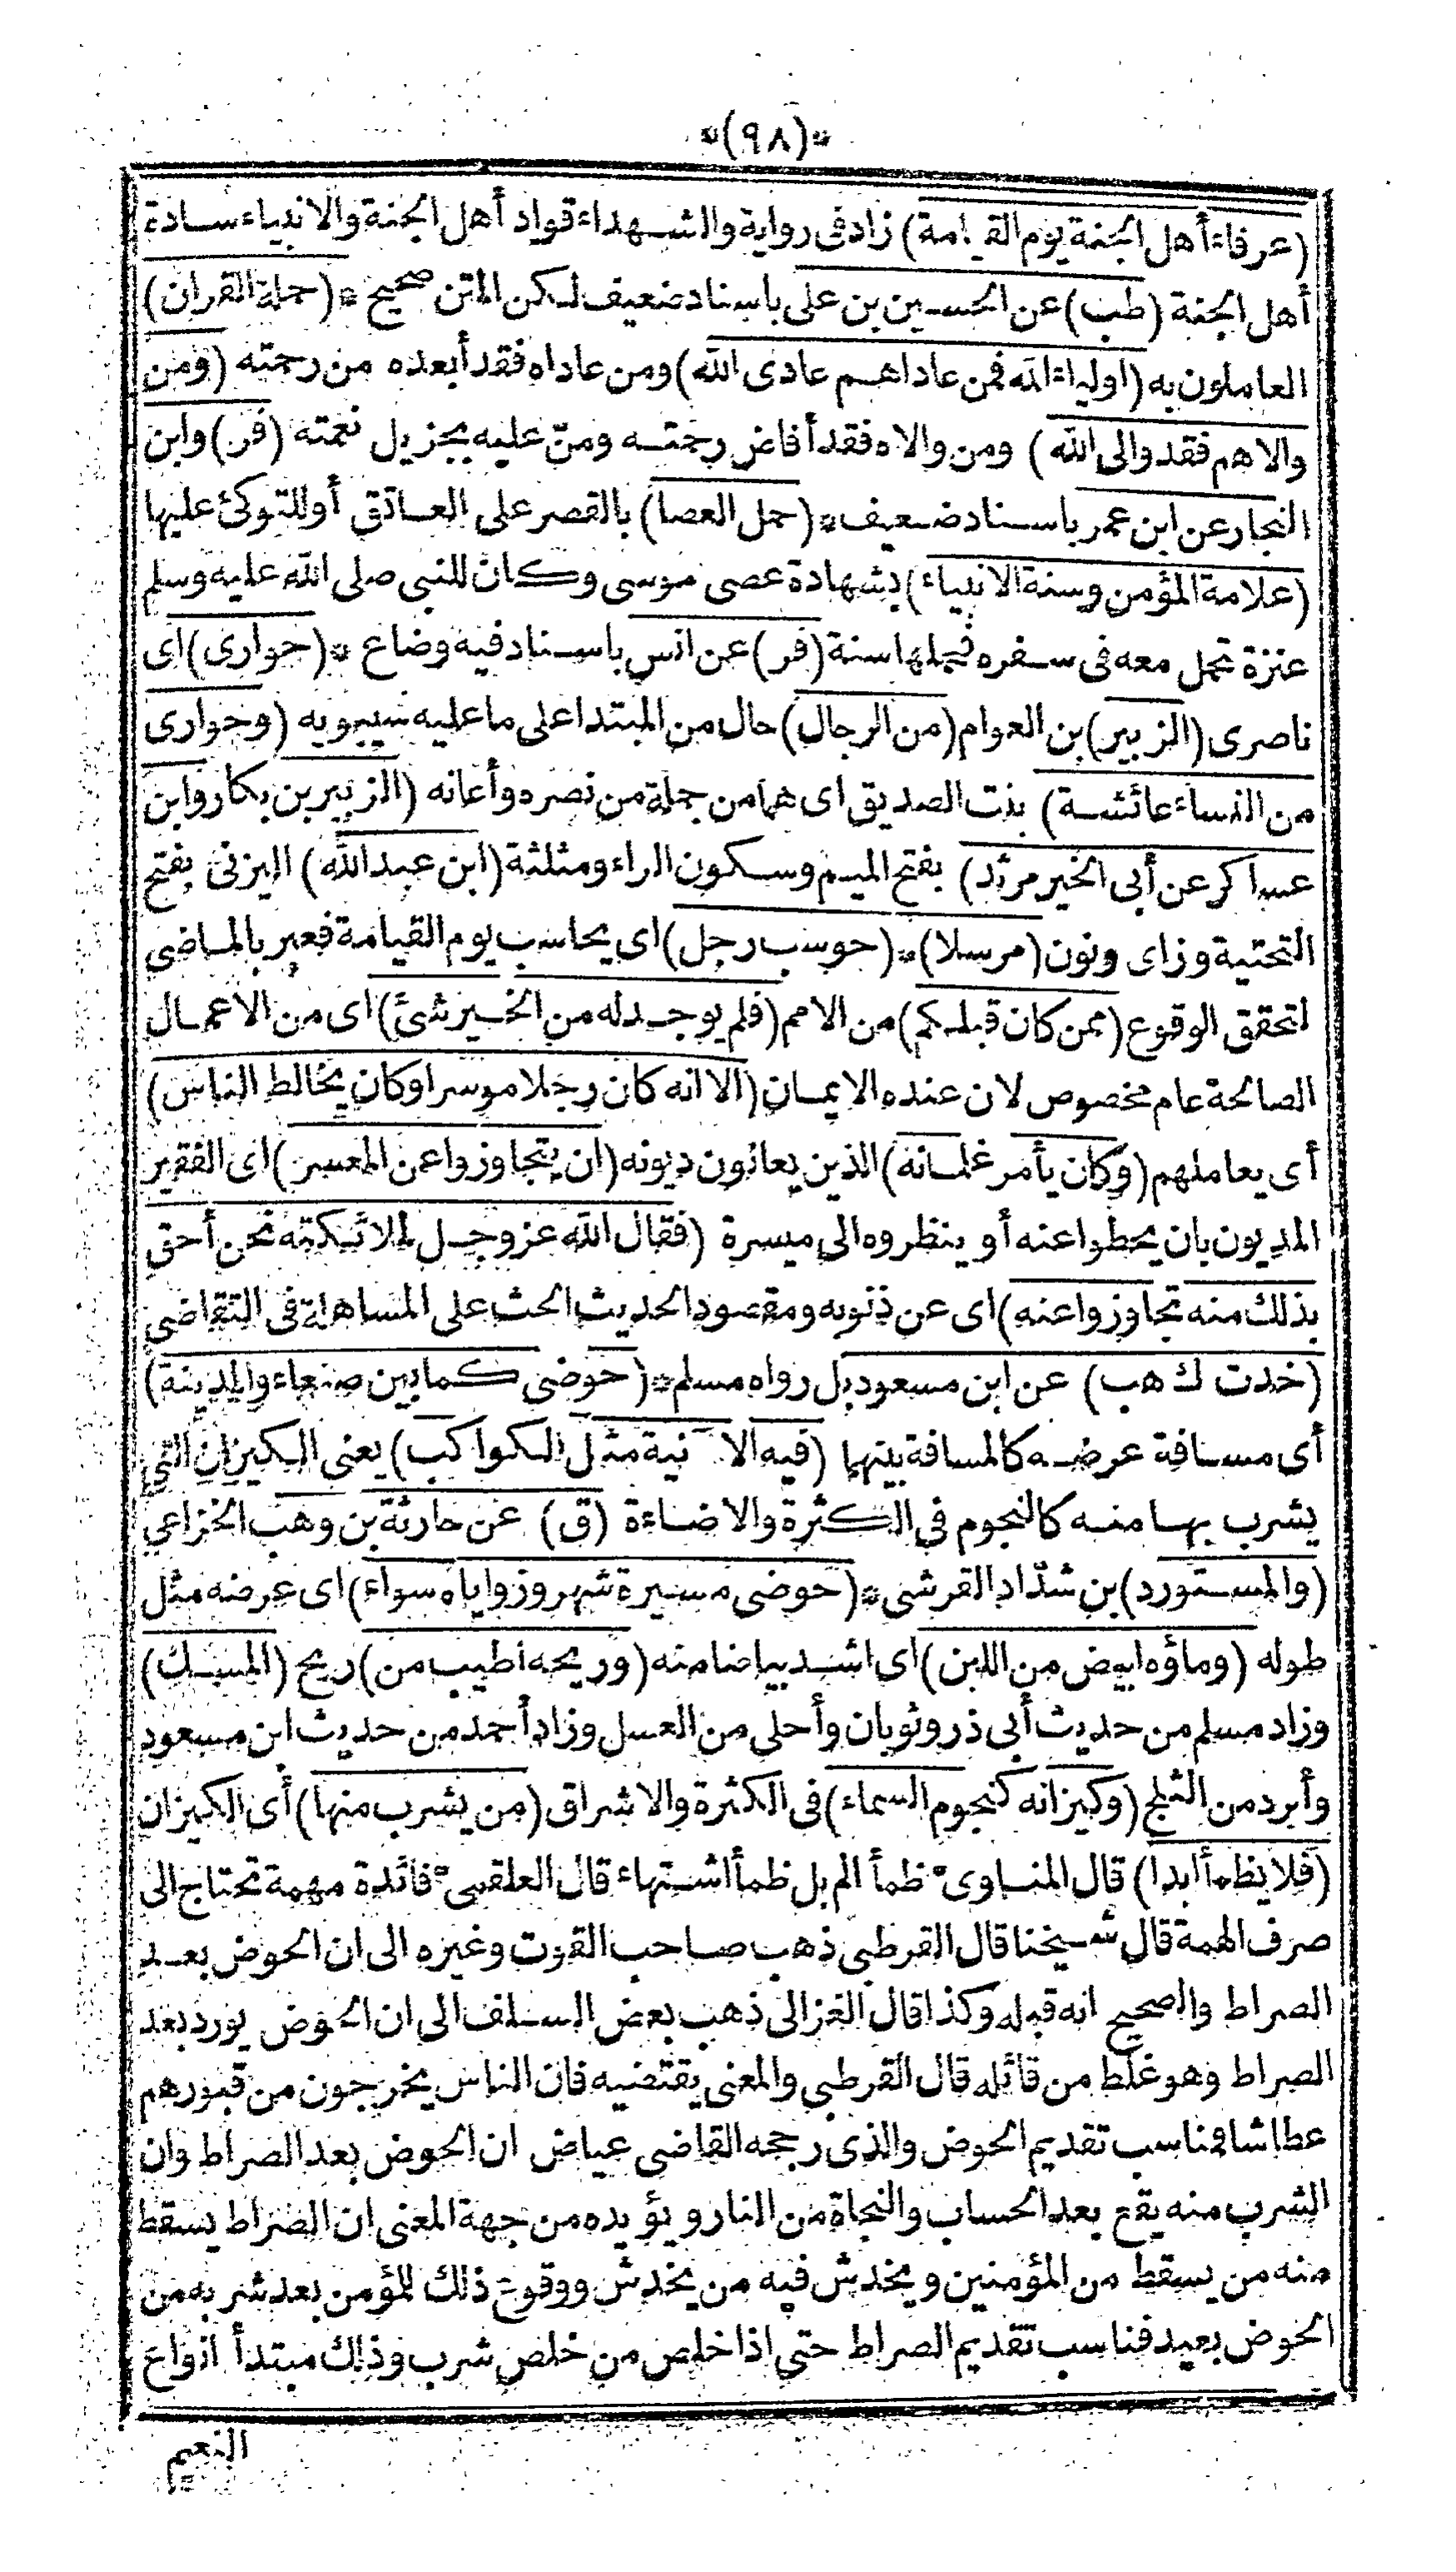 *(٩٨)*
(عرفاء أهل الجنة يوم القيامة) زاد فى رواية والشهداء قواد أهل الجنة والانبياء سادة
أهل الجنة (طب) عن الحسين بن على باسناد ضعيف لكن المتن صحيح * (حملة القرآن)
العاملون به (أولياء الله فمن عاداهم عادى الله) ومن عاداه فقد أبعده من رحمته (ومن
والاهم فقد والى الله) ومن والاه فقد أفاض رحمته ومنّ عليه بجزيل نعمته (فر) وابن
النجار عن ابن عمر باسناد ضعيف * (حمل العصا) بالقصر على العاتق أو للتوكئ عليها
(علامة المؤمن وسنة الانبياء) بشهادة عصى موسى وكان للنبى صلى الله عليه وسلم
عنزة تحمل معه فى سفره فحملها سنة (فر) عن انس باسناد فيه وضاع * (حوارى) اى
ناصرى (الزبير) بن العوام (من الرجال) حال من المبتدا على ما عليه سيبويه (وحوارى
من النساء عائشة) بنت الصديق اى هما من جملة من نصره وأعانه (الزبير بن بكار وابن
عساكر عن أبى الخير مرثد) بفتح الميم وسكون الراء ومثلثة (ابن عبد الله) اليزنى بفتح
التحتية وزاى ونون (مرسلا) * (حوسب رجل) اى يحاسب يوم القيامة فعبر بالماضى
لتحقق الوقوع (ممن كان قبلكم) من الامم (فلم يوجد له من الخير شئ) اى من الاعمال
الصالحة عام مخصوص لان عنده الايمان (الا انه كان رجلا موسرا وكان يخالط الناس)
أى يعاملهم (وكان يأمر غلمانه) الذين يعانون ديونه (ان يتجاوزوا عن المعسر) اى الفقير
المديون بان يحطوا عنه أو ينظروه الى ميسرة (فقال الله عز وجل لملائكته نحن أحق
بذلك منه تجاوزوا عنه) اى عن ذنوبه ومقصود الحديث الحث على المساهلة فى التقاضى
(خدت ك هب) عن ابن مسعود بل رواه مسلم * (حوضى كما بين صنعاء والمدينة)
أى مسافة عرضه كالمسافة بينهما (فيه الآنية مثل الكواكب) يعنى الكيزان التى
يشرب بها منه كالنجوم فى الكثرة والاضاءة (ق) عن حارثة بن وهب الخزاعى
(والمستورد) بن شدّاد القرشى * (حوضى مسيرة شهر وزواياه سواء) اى عرضه مثل
طوله (وماؤه ابيض من اللبن) اى اشد بياضا منه (وريحه اطيب من) ريح (المسك)
وزاد مسلم من حديث أبى ذر وثوبان وأحلى من العسل وزاد أحمد من حديث ابن مسعود
وأبرد من الثلج (وكيزانه كنجوم السماء) فى الكثرة والاشراق (من يشرب منها) أى الكيزان
(فلا يظمأ ابدا) قال المناوى ظمأ الم بل ظمأ اشتهاء قال العلقمى فائدة مهمة تحتاج الى
صرف الهمة قال شيخنا قال القرطبى ذهب صاحب القوت وغيره الى ان الحوض بعد
الصراط والصحيح انه قبله وكذا قال الغزالى ذهب بعض السلف الى ان الحوض يورد بعد
الصراط وهو غلط من قائله قال القرطبى والمعنى يقتضيه فان الناس يخرجون من قبورهم
عطاشا فناسب تقديم الحوض والذى رجحه القاضى عياض ان الحوض بعد الصراط وان
الشرب منه يقع بعد الحساب والنجاة من النار ويؤيده من جهة المعنى ان الصراط يسقط
منه من يسقط من المؤمنين ويخدش فيه من يخدش ووقوع ذلك للمؤمن بعد شربه من
الحوض بعيد فناسب تقديم الصراط حتى اذا خلص من خلص شرب وذلك مبتدأ انواع
النعيم